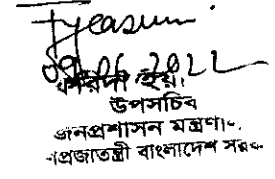 09.06.2022
উপসচিব
জনপ্রশাসন মন্ত্রণা
প্রজাতন্ত্রী বাংলাদেশ সর